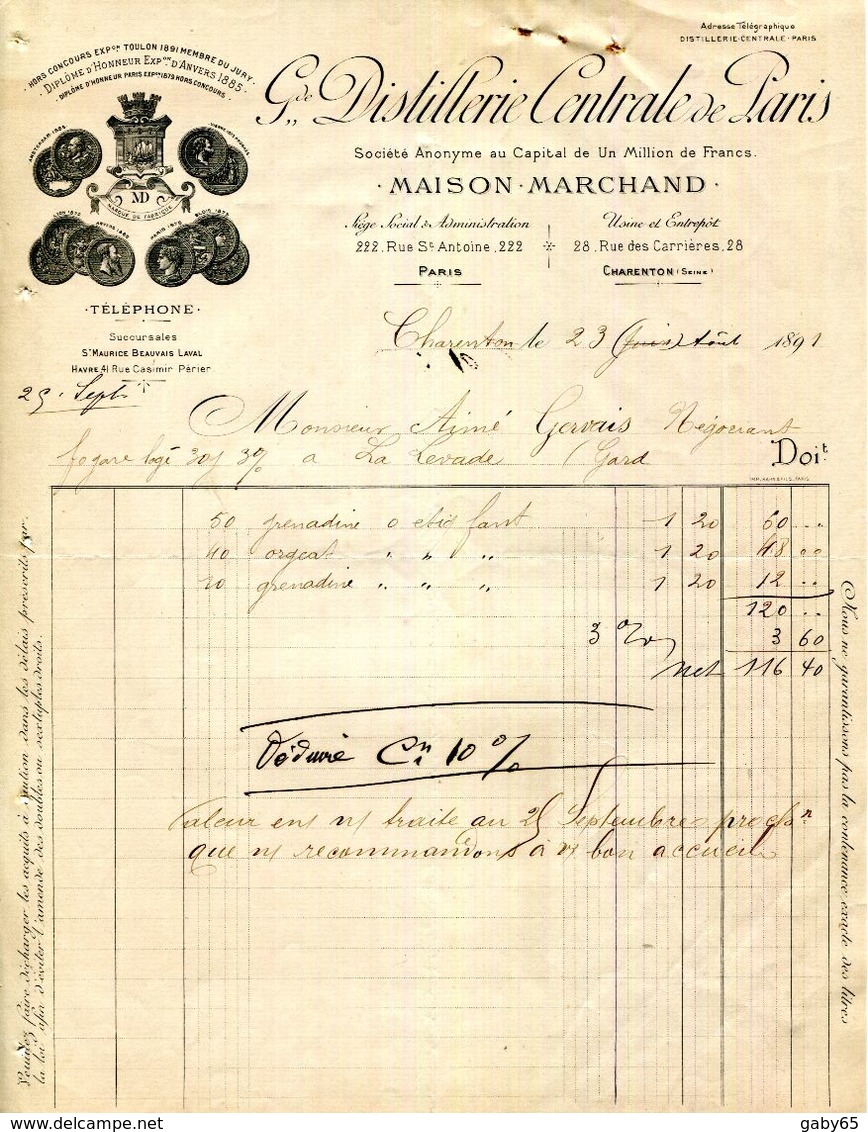 Adresse Télégraphique
DISTILLERIE-CENTRALE-PARIS
HORS CONCOURS EXPon TOULON 1891 MEMBRE DU JURY
DIPLÔME D'HONNEUR EXPon D'ANVERS 1885
DIPLÔME D'HONNEUR PARIS EXPon 1879 HORS CONCOURS
Gde Distillerie Centrale de Paris
Société Anonyme au Capital de Un Million de Francs.
MAISON · MARCHAND
MD
MARQUE DE FABRIQUE
Siège Social & Administration
222, Rue St Antoine, 222
PARIS
Usine et Entrepôt
28, Rue des Carrières, 28
CHARENTON (SEINE)
TÉLÉPHONE
Succursales
St MAURICE BEAUVAIS LAVAL
HAVRE, 41 RUE CASIMIR PÉRIER
Charenton le 23 (Juin) Août 1891
25. Septe
Monsieur Aimé Gervais Négociant
à La Levade (Gard
Doit
IMP. KAHN & FILS, PARIS
50 grenadine 1 20 60 ..
40 orgeat " " " 1 20 48 ..
10 grenadine " " " 1 20 12 ..
120 ..
3 % 3 60
Net 116 40
Déduire 10 %
Valeur en n/ traite au 25 Septembre proch
que n/ recommandons à v/ bon accueil
Veuillez faire décharger les acquits à caution dans les délais prescrits par
la loi afin d'éviter l'amende des doubles ou sextuples droits.
Nous ne garantissons pas la contenance exacte des litres
www.delcampe.net
gaby65